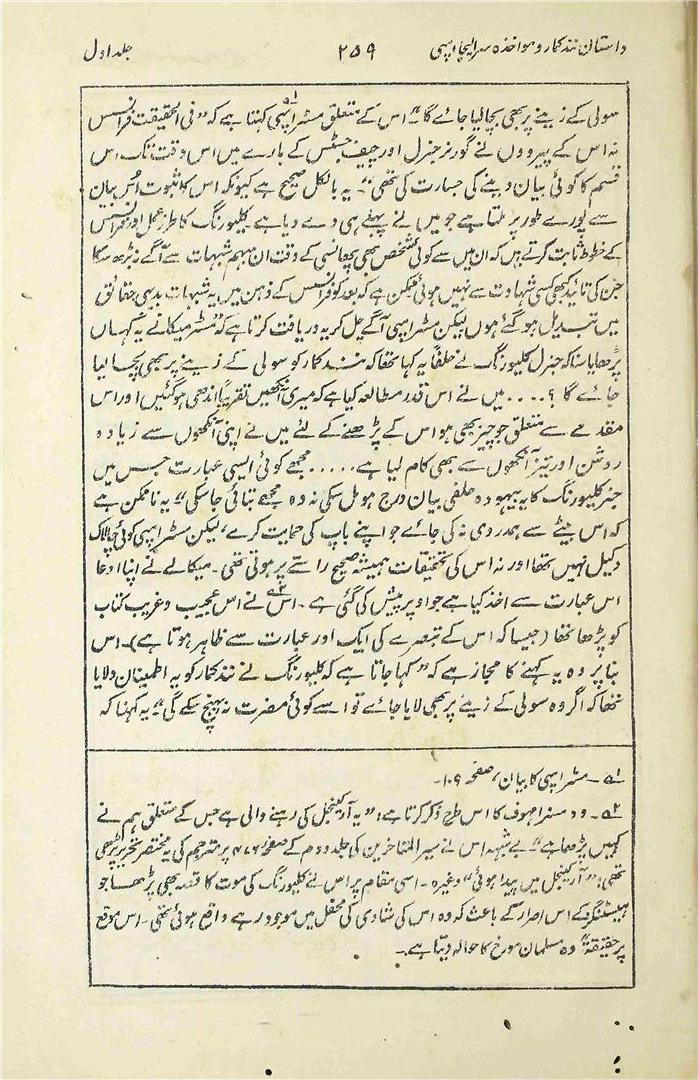 داستان نندکمار و مواخذہ سر ایلیجا امپی ۲۵۹ جلد اول
سولی کے زینے پر بھی بچا لیا جائے گا“ اس کے متعلق مسٹر امپی کہتا ہے کہ ”فی الحقیقت فرانسس
نہ اس کے پیرووں نے گورنر جنرل اور چیف جسٹس کے بارے میں اس وقت تک اس
قسم کا کوئی بیان دینے کی جسارت کی تھی“۔ یہ بالکل صحیح ہے کیونکہ اس کا ثبوت اُس بیان
سے پورے طور پر ملتا ہے جو میں نے پہلے ہی دے دیا ہے کلیورنگ کا طرز عمل اور فرانسس
کے خطوط ثابت کرتے ہیں کہ ان میں سے کوئی شخص بھی پھانسی کے وقت ان مبہم شبہات سے آگے نہ بڑھ سکا
جن کی تائید کبھی کسی شہادت سے نہیں ہوئی ممکن ہے کہ بعد کو فرانسس کے ذہن میں یہ شبہات بدیہی حقائق
میں تبدیل ہو گئے ہوں لیکن مسٹر امپی آگے چل کر یہ دریافت کرتا ہے کہ ”مسٹر میکالے نے یہ کہاں
پڑھا یا سنا کہ جنرل کلیورنگ نے حلفاً یہ کہا تھا کہ نندکمار کو سولی کے زینے پر بھی بچا لیا
جائے گا ؟ .... میں نے اس قدر مطالعہ کیا ہے کہ میری آنکھیں تقریباً اندھی ہو گئیں اور اس
مقدمے سے متعلق جو چیز بھی ہو اس کے پڑھنے کے لئے میں نے اپنی آنکھوں سے زیادہ
روشن اور تیز آنکھوں سے بھی کام لیا ہے ..... مجھے کوئی ایسی عبارت جس میں
جنرل کلیورنگ کا یہ بیہودہ حلفی بیان درج ہو مل سکی نہ وہ مجھے بتائی جا سکی“ یہ ناممکن ہے
کہ اس بیٹے سے ہمدردی نہ کی جائے جو اپنے باپ کی حمایت کرے، لیکن مسٹر امپی کوئی چالاک
وکیل نہیں تھا اور نہ اس کی تحقیقات ہمیشہ صحیح راستے پر ہوتی تھی۔ میکالے نے اپنا ادعا
اس عبارت سے اخذ کیا ہے جو اوپر پیش کی گئی ہے۔ اس نے اس عجیب و غریب کتاب
کو پڑھا تھا (جیسا کہ اس کے تبصرے کی ایک اور عبارت سے ظاہر ہوتا ہے)۔ اس
بنا پر وہ یہ کہنے کا مجاز ہے کہ ”کہا جاتا ہے کہ کلیورنگ نے نندکمار کو یہ اطمینان دلایا
تھا کہ اگر وہ سولی کے زینے پر بھی لایا جائے تو اسے کوئی مضرت نہ پہنچ سکے گی“ یہ کہنا کہ
۱؎۔ مسٹر امپی کا بیان، صفحہ ۱۰۶۔
۲؎۔ وہ مسز امہوف کا اس طرح ذکر کرتا ہے: ”یہ آرکینجل کی رہنے والی ہے جس کے متعلق ہم نے
کہیں پڑھا ہے“ بے شبہہ اس نے سیر المتاخرین کی جلد دوم کے صفحہ ۴۷۶ پر مترجم کی یہ مختصر تحریر پڑھی
تھی: ”آرکینجل میں پیدا ہوئی“ وغیرہ۔ اسی مقام پر اس نے کلیورنگ کی موت کا قصہ بھی پڑھا جو
ہیسٹنگز کے اس اصرار کے باعث کہ وہ اس کی شادی کی محفل میں موجود رہے واقع ہوئی تھی۔ اس موقع
پر حقیقۃً وہ مسلمان مورخ کا حوالہ دیتا ہے۔